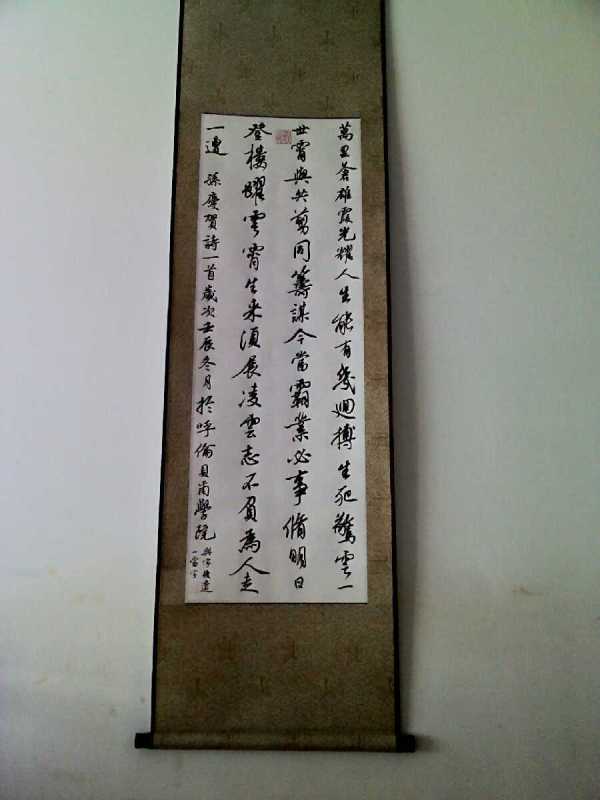 萬里蒼雄霞光耀人生能有幾迴搏生死驚雲一
世霄與共剪同籌謀今當霸業必事脩明日
登樓躍雲霄生来須展凌雲志不負為人走
一遭 孫慶賀詩一首歲次壬辰冬月於呼倫貝爾學院
與字後遺
一當字